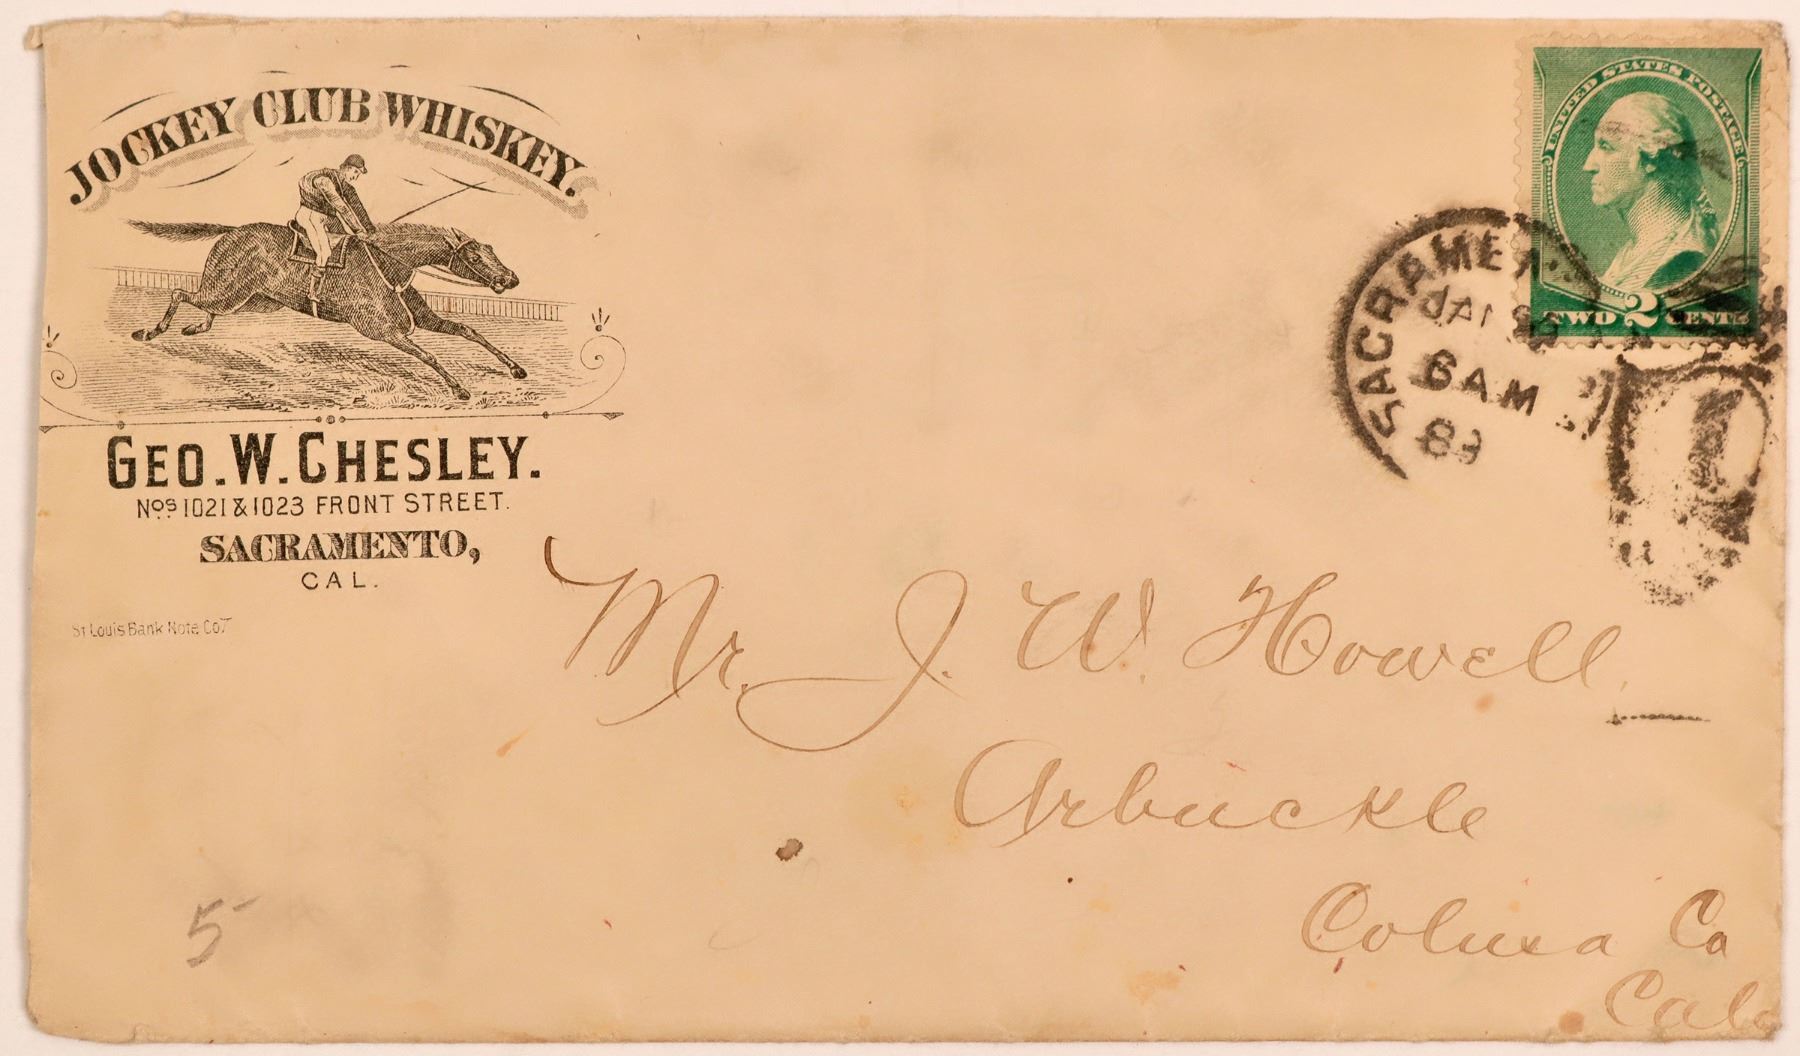 JOCKEY CLUB WHISKEY.
GEO. W. CHESLEY.
Nos 1021 & 1023 FRONT STREET.
SACRAMENTO,
CAL.
St Louis Bank Note Co.
UNITED STATES POSTAGE
TWO 2 CENTS
SACRAMENT
6 AM
89
Mr. J. W. Howell
Arbuckle
Colusa Co
Cal
5